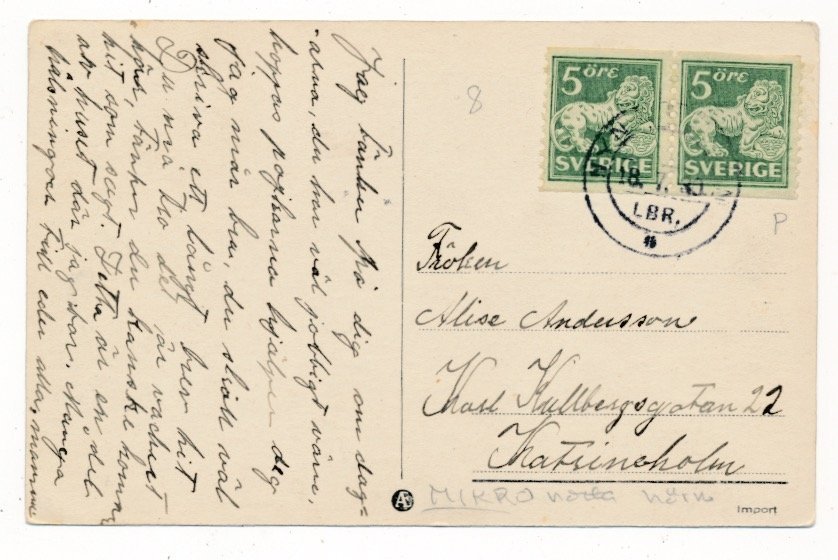 Jag tänker på dig om dag-
arna, du har väl jobbigt värre,
hoppas pojkarna hjälper dig
Jag mår bra, du skall väl
skriva ett långt brev hit
Du må tro det är vackert
här, tänker du kanske komma
hit som sagt. Detta är en del
av huset där jag bor. Många
hälsningar till eder alla, mamma
8
5 öre
SVERIGE
5 öre
SVERIGE
18.7.
LBR.
P
Fröken
Alise Andersson
Karl Kullbergsgatan 22
Katrineholm
A
MIKRO norra
Import